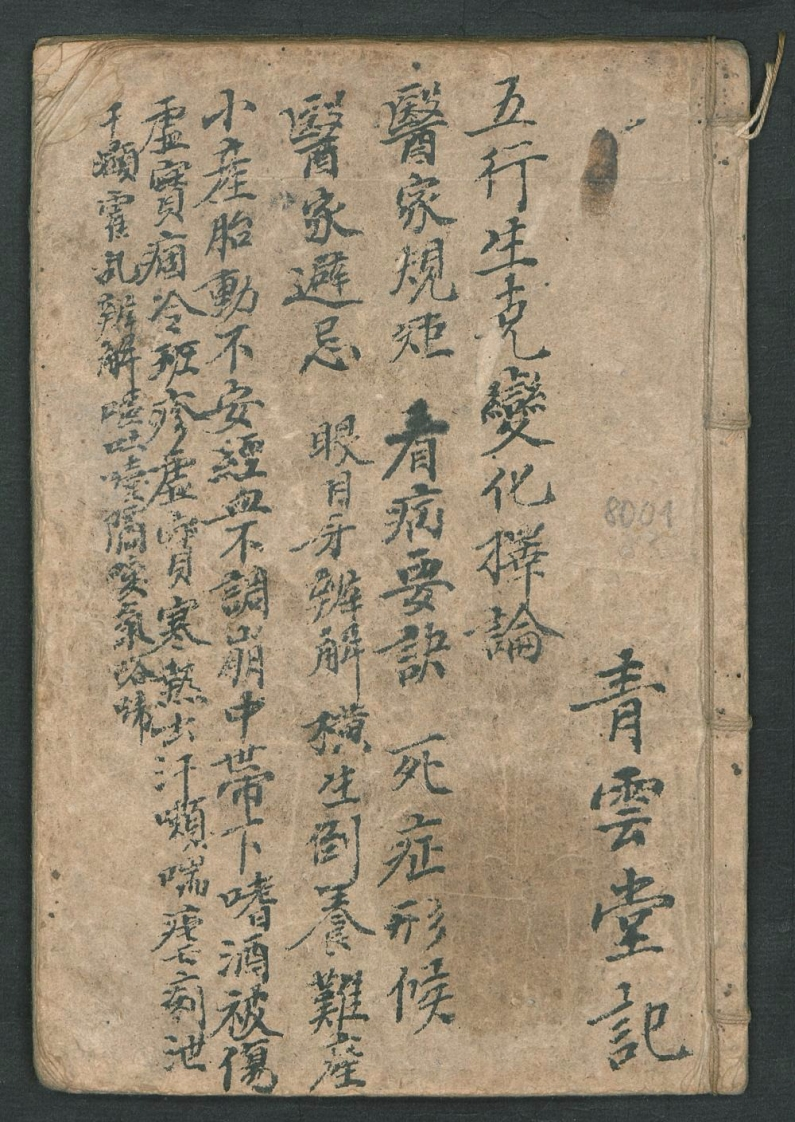 青雲堂記
8001
五行生克變化擇論
醫家規矩 看病要訣 死症形候
醫家避忌 眼目牙辨解 橫生倒養難產
小產胎動不安經血不調崩中帶下嗜酒被傷
虛實痼冷班疹虛實寒熱出汗嗽喘瘧痢泄
霍乱辨解嘔吐噎膈咳氣